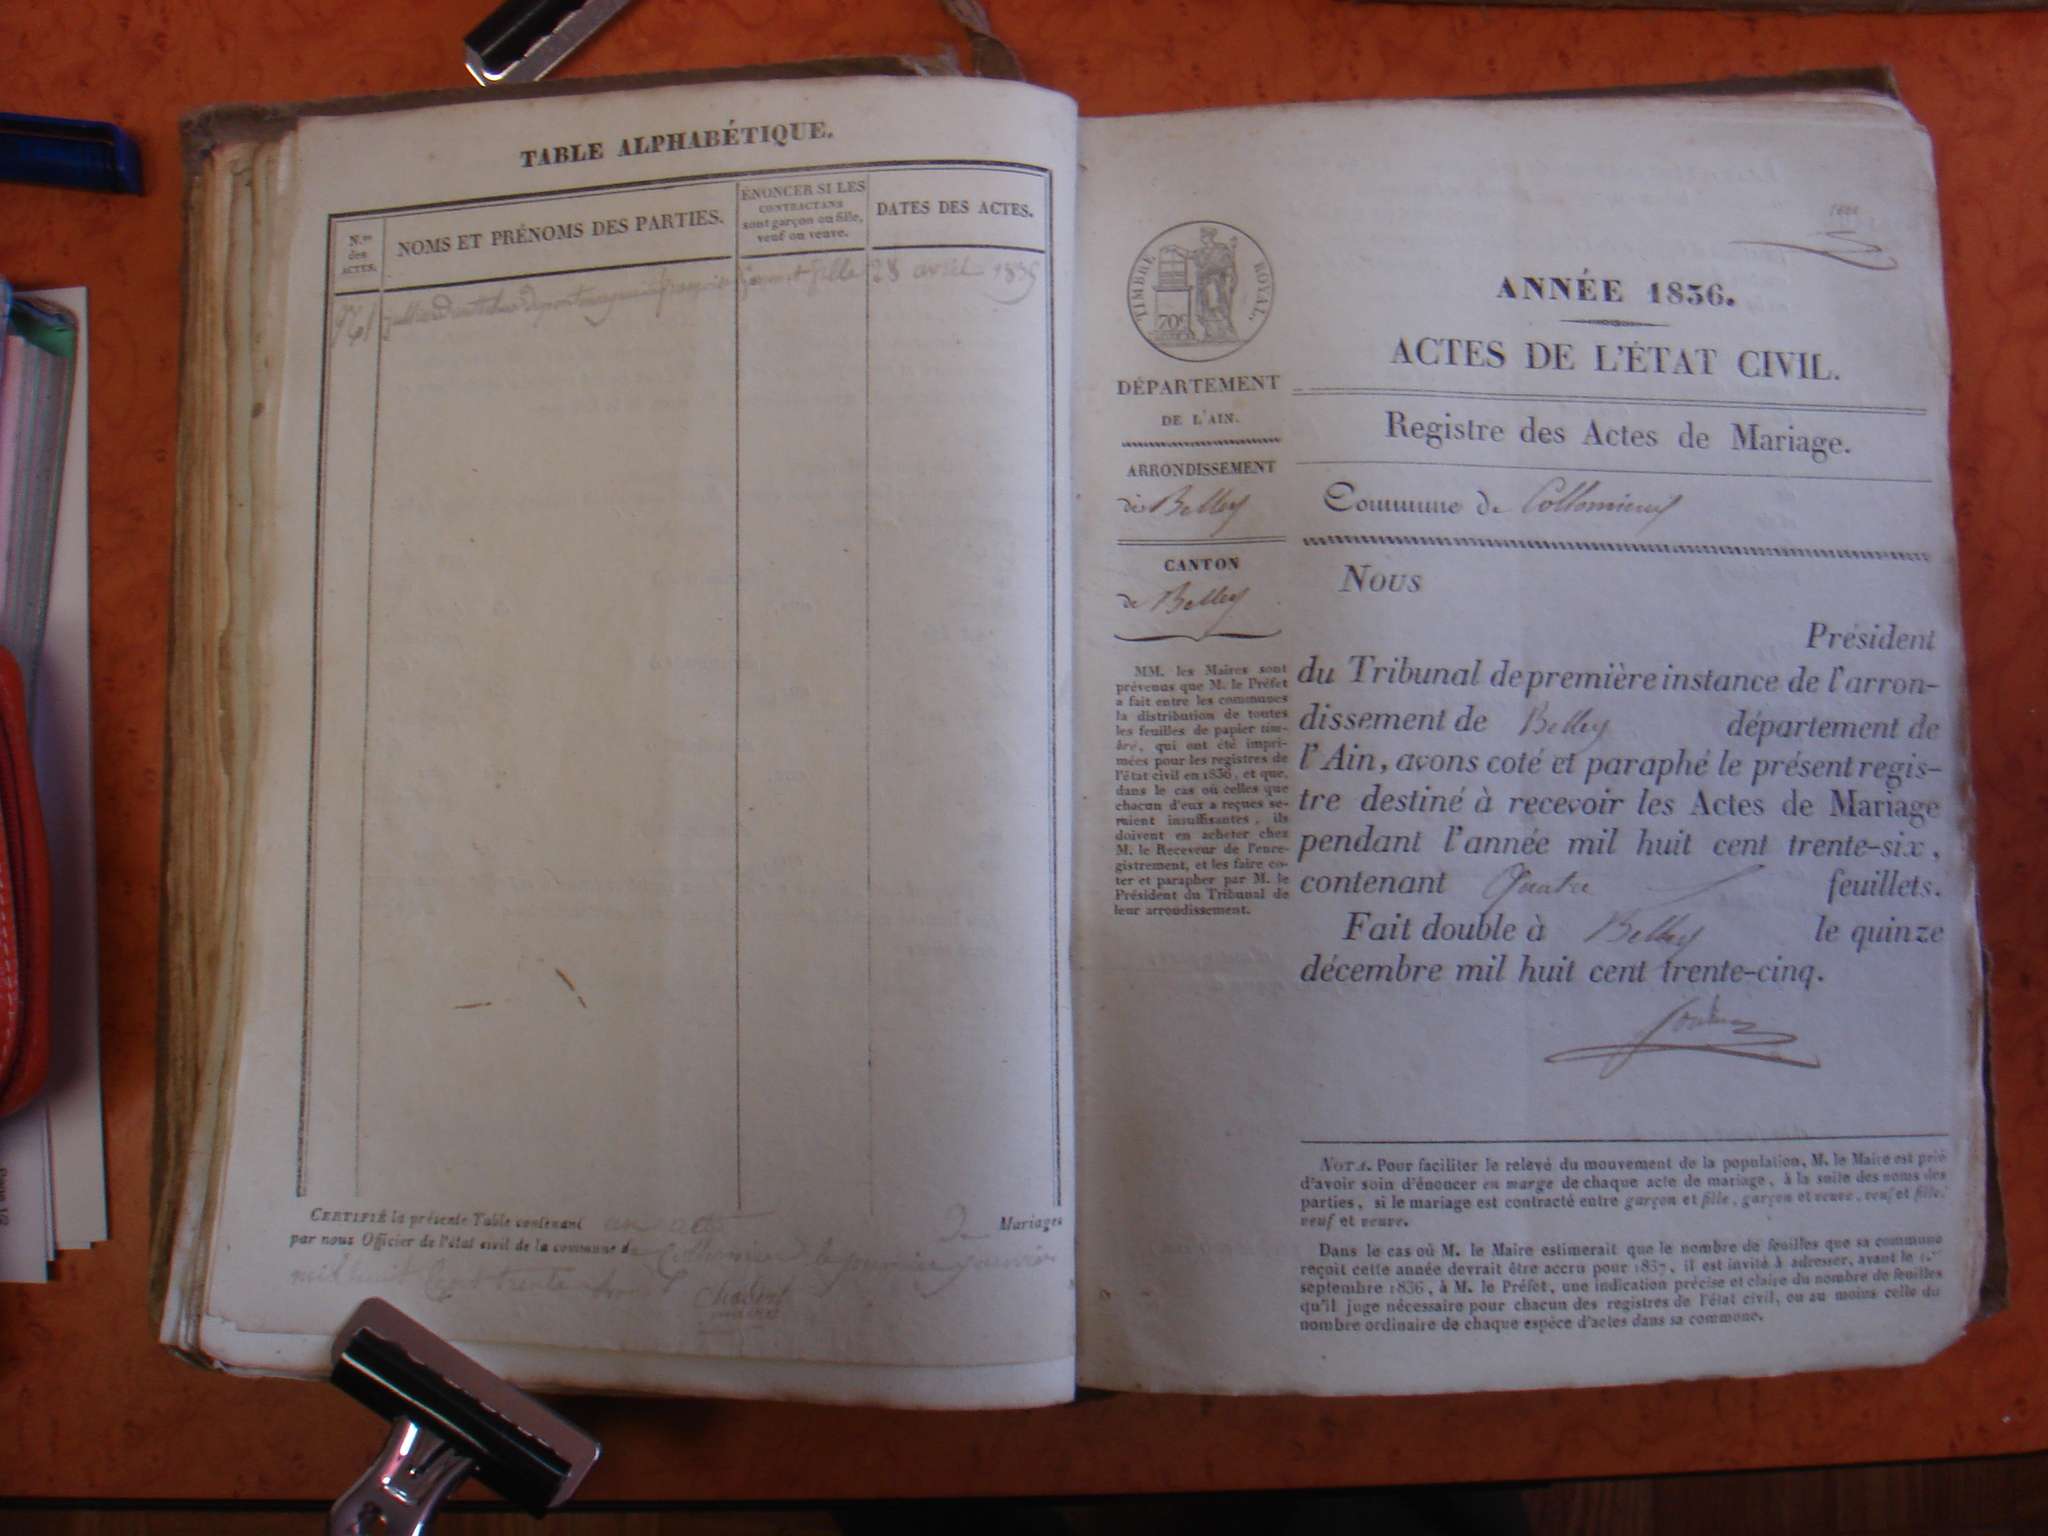 TABLE ALPHABÉTIQUE.
N.os des ACTES.
NOMS ET PRÉNOMS DES PARTIES.
ÉNONCER SI LES
CONTRACTANS
sont garçon ou fille,
veuf ou veuve.
DATES DES ACTES.
28 avril 1835
CERTIFIÉ la présente Table contenant un acte de Mariages
par nous Officier de l'état civil de la commune de
mil huit Cent trente
TIMBRE ROYAL.
70c
DÉPARTEMENT
DE L'AIN.
ARRONDISSEMENT
de Belley
CANTON
de Belley
MM. les Maires sont
prévenus que M. le Préfet
a fait entre les communes
la distribution de toutes
les feuilles de papier tim-
bré, qui ont été impri-
mées pour les registres de
l'état civil en 1836, et que,
dans le cas où celles que
chacun d'eux a reçues se-
raient insuffisantes, ils
doivent en acheter chez
M. le Receveur de l'enre-
gistrement, et les faire co-
ter et parapher par M. le
Président du Tribunal de
leur arrondissement.
ANNÉE 1836.
ACTES DE L'ÉTAT CIVIL.
Registre des Actes de Mariage.
Commune de Collomieux
Nous
Président
du Tribunal de première instance de l'arron-
dissement de Belley département de
l'Ain, avons coté et paraphé le présent regis-
tre destiné à recevoir les Actes de Mariage
pendant l'année mil huit cent trente-six,
contenant Quatre feuillets.
Fait double à Belley le quinze
décembre mil huit cent trente-cinq.
NOTA. Pour faciliter le relevé du mouvement de la population, M. le Maire est prié
d'avoir soin d'énoncer en marge de chaque acte de mariage, à la suite des noms des
parties, si le mariage est contracté entre garçon et fille, garçon et veuve, veuf et fille,
veuf et veuve.
Dans le cas où M. le Maire estimerait que le nombre de feuilles que sa commune
reçoit cette année devrait être accru pour 1837, il est invité à adresser, avant le 1.er
septembre 1836, à M. le Préfet, une indication précise et claire du nombre de feuilles
qu'il juge nécessaire pour chacun des registres de l'état civil, ou au moins celle du
nombre ordinaire de chaque espèce d'actes dans sa commune.